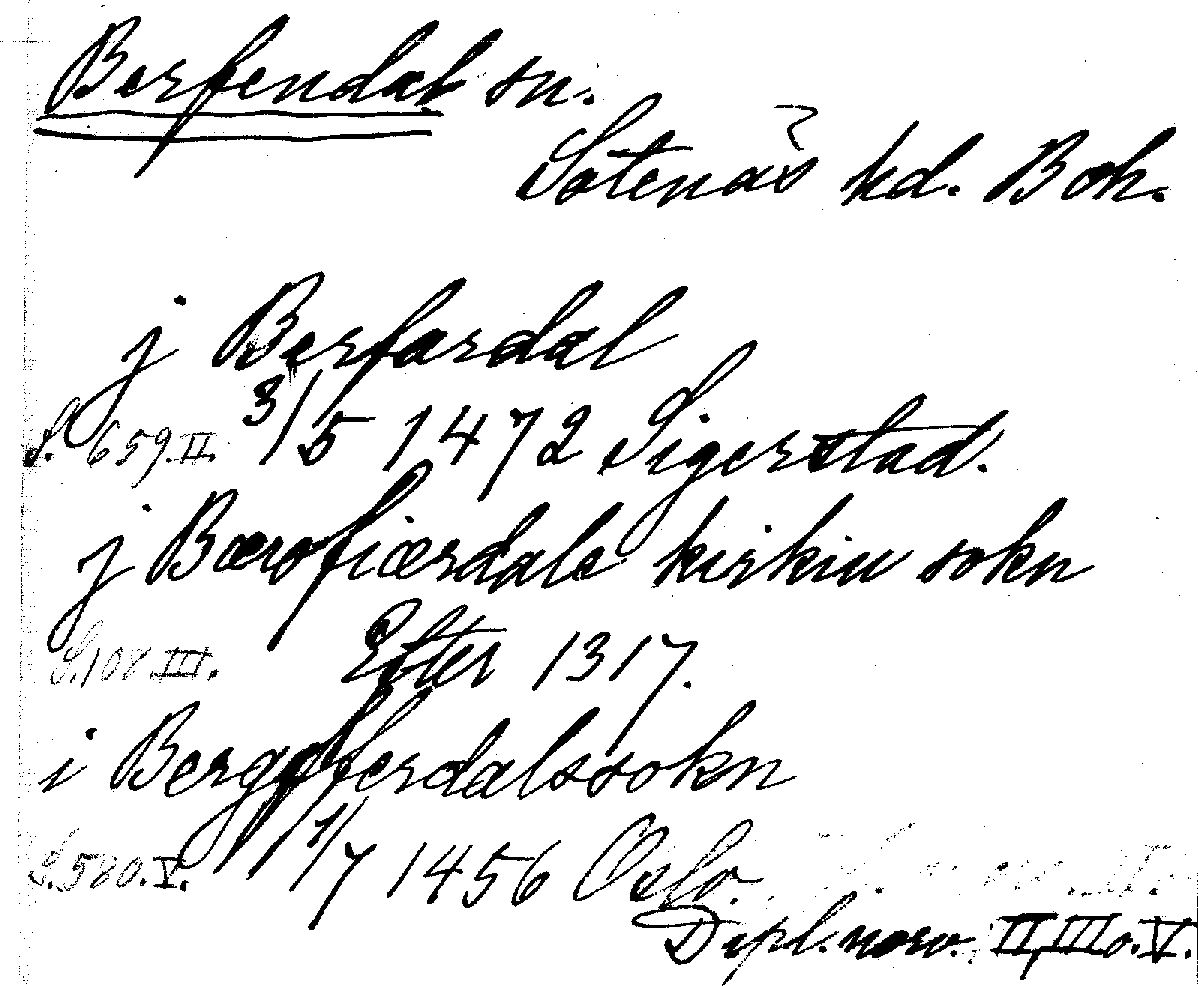 Berfendal sn.
Sotenäs hd. Boh.
j Berfærdal
S. 659. II. 3/5 1472 Sigerstad.
j Bærofiærdale kirkiu sokn
S. 108 III. Efter 1317.
i Bergpferdalssokn
S. 580. V. 1/7 1456 Oslo.
Dipl. norv. II, III o. V.